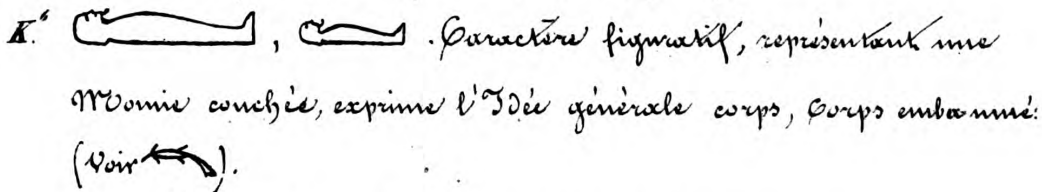 K.° , . Caractère figuratif, représentant une
Momie couchée, exprime l'Idée générale corps, Corps embaumé:
(Voir ).